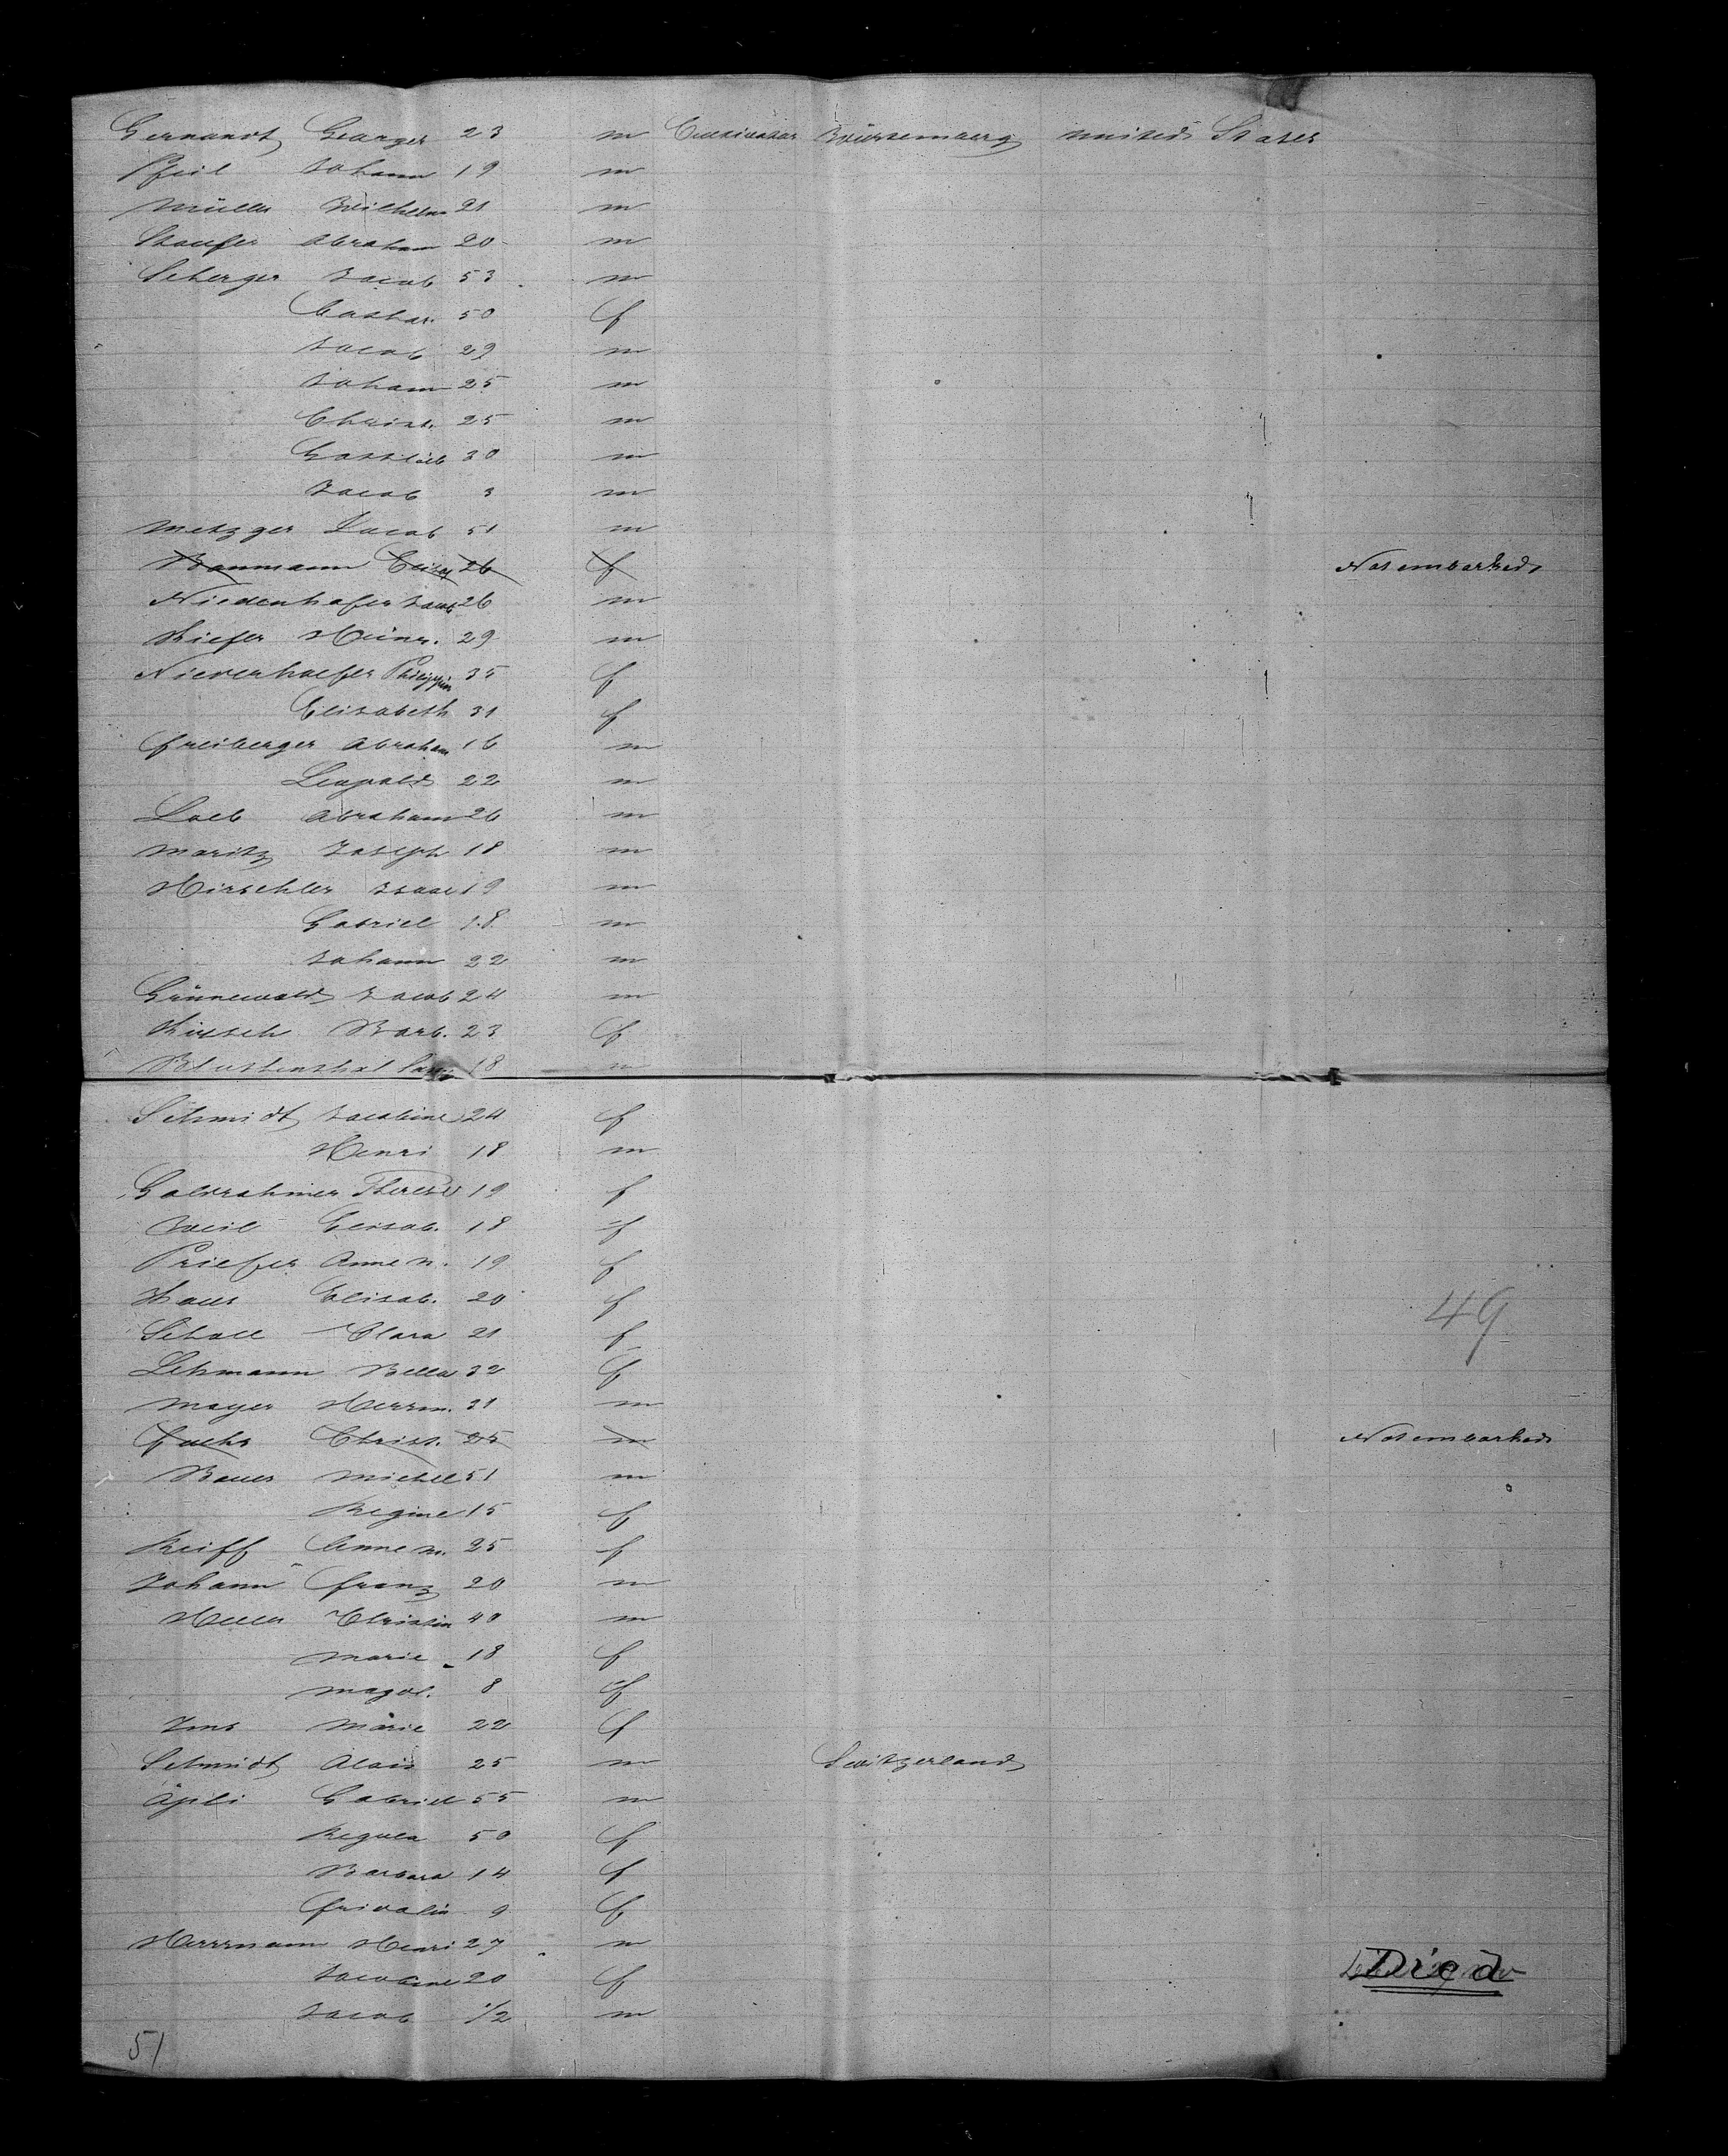 Gernandt George 23 m Cultivator Würtemberg United States
Pfeil Johann 19 m
Müller Wilhelm 21 m
Staufer Abraham 20 m
Scherger Jacob 53 m
Cathar. 50 f
Jacob 29 m
Johann 25 m
Christ. 25 m
Gottlieb 30 m
Jacob 3 m
Metzger Jacob 51 m
Baumann Elise 26 f Not embarked
Niedenhofer Jacob 26 m
Kiefer Heinr. 29 m
Niederhoefer Philippin 35 f
Elisabeth 31 f
Freiberger Abraham 16 m
Leopold 22 m
Loeb Abraham 26 m
Moritz Joseph 18 m
Hirschler Isaac 19 m
Gabriel 18 m
Johann 22 m
Grünewald Jacob 24 m
Kirsch Barb. 23 f
18 m
Schmidt Jacobine 24 f
Henri 18 m
Therese 19 f
Weil Elisab. 18 f
Priefer Anne M. 19 f
Haus Elisab. 20 f
Scholl Clara 21 f
49
Lehmann Bella 32 f
Mayer Herrm. 31 m
Fuchs Christ. 25 m Not embarked
Bauer Michel 51 m
Regine 15 f
Reiff Anne M. 25 f
Johann Franz 20 m
Heller Christin 40 m
Marie 18 f
Magd. 8 f
Imb Marie 22 f
Schmidt Alois 25 m Switzerland
Äpli Gabriel 55 m
Regula 50 f
Barbara 14 f
Fridolin 9 f
Herrmann Henri 27 m
Jacobine 20 f Died
Jacob 1/2 m
51